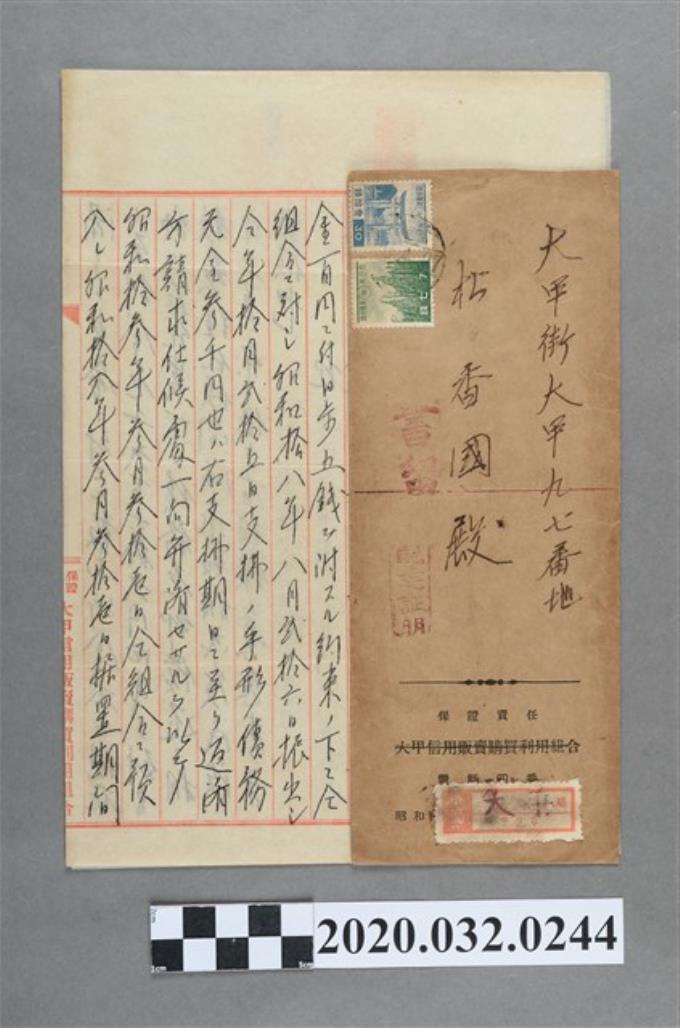 大甲街大甲九七番地
松香國殿
書留
配達證明
保證責任
大甲信用販賣購買利用組合
電話四七番
昭和
大甲
30
金一百円ニ付日歩五銭ヲ附スル約束ノ下ニ仝
組合ニ対シ昭和拾八年八月弐拾六日振出シ
仝年拾月弐拾五日支拂ノ手形債務
元金参千円也ハ右支拂期日ニ至リ返済
方請求仕候處一向弁済セサルヨリ
昭和拾参年参月参拾壱日仝組合ニ預
入シ昭和拾八年参月参拾壱日据置期間
保證
大甲信用販賣購買利用組合
2cm
1cm
5cm
2020.032.0244